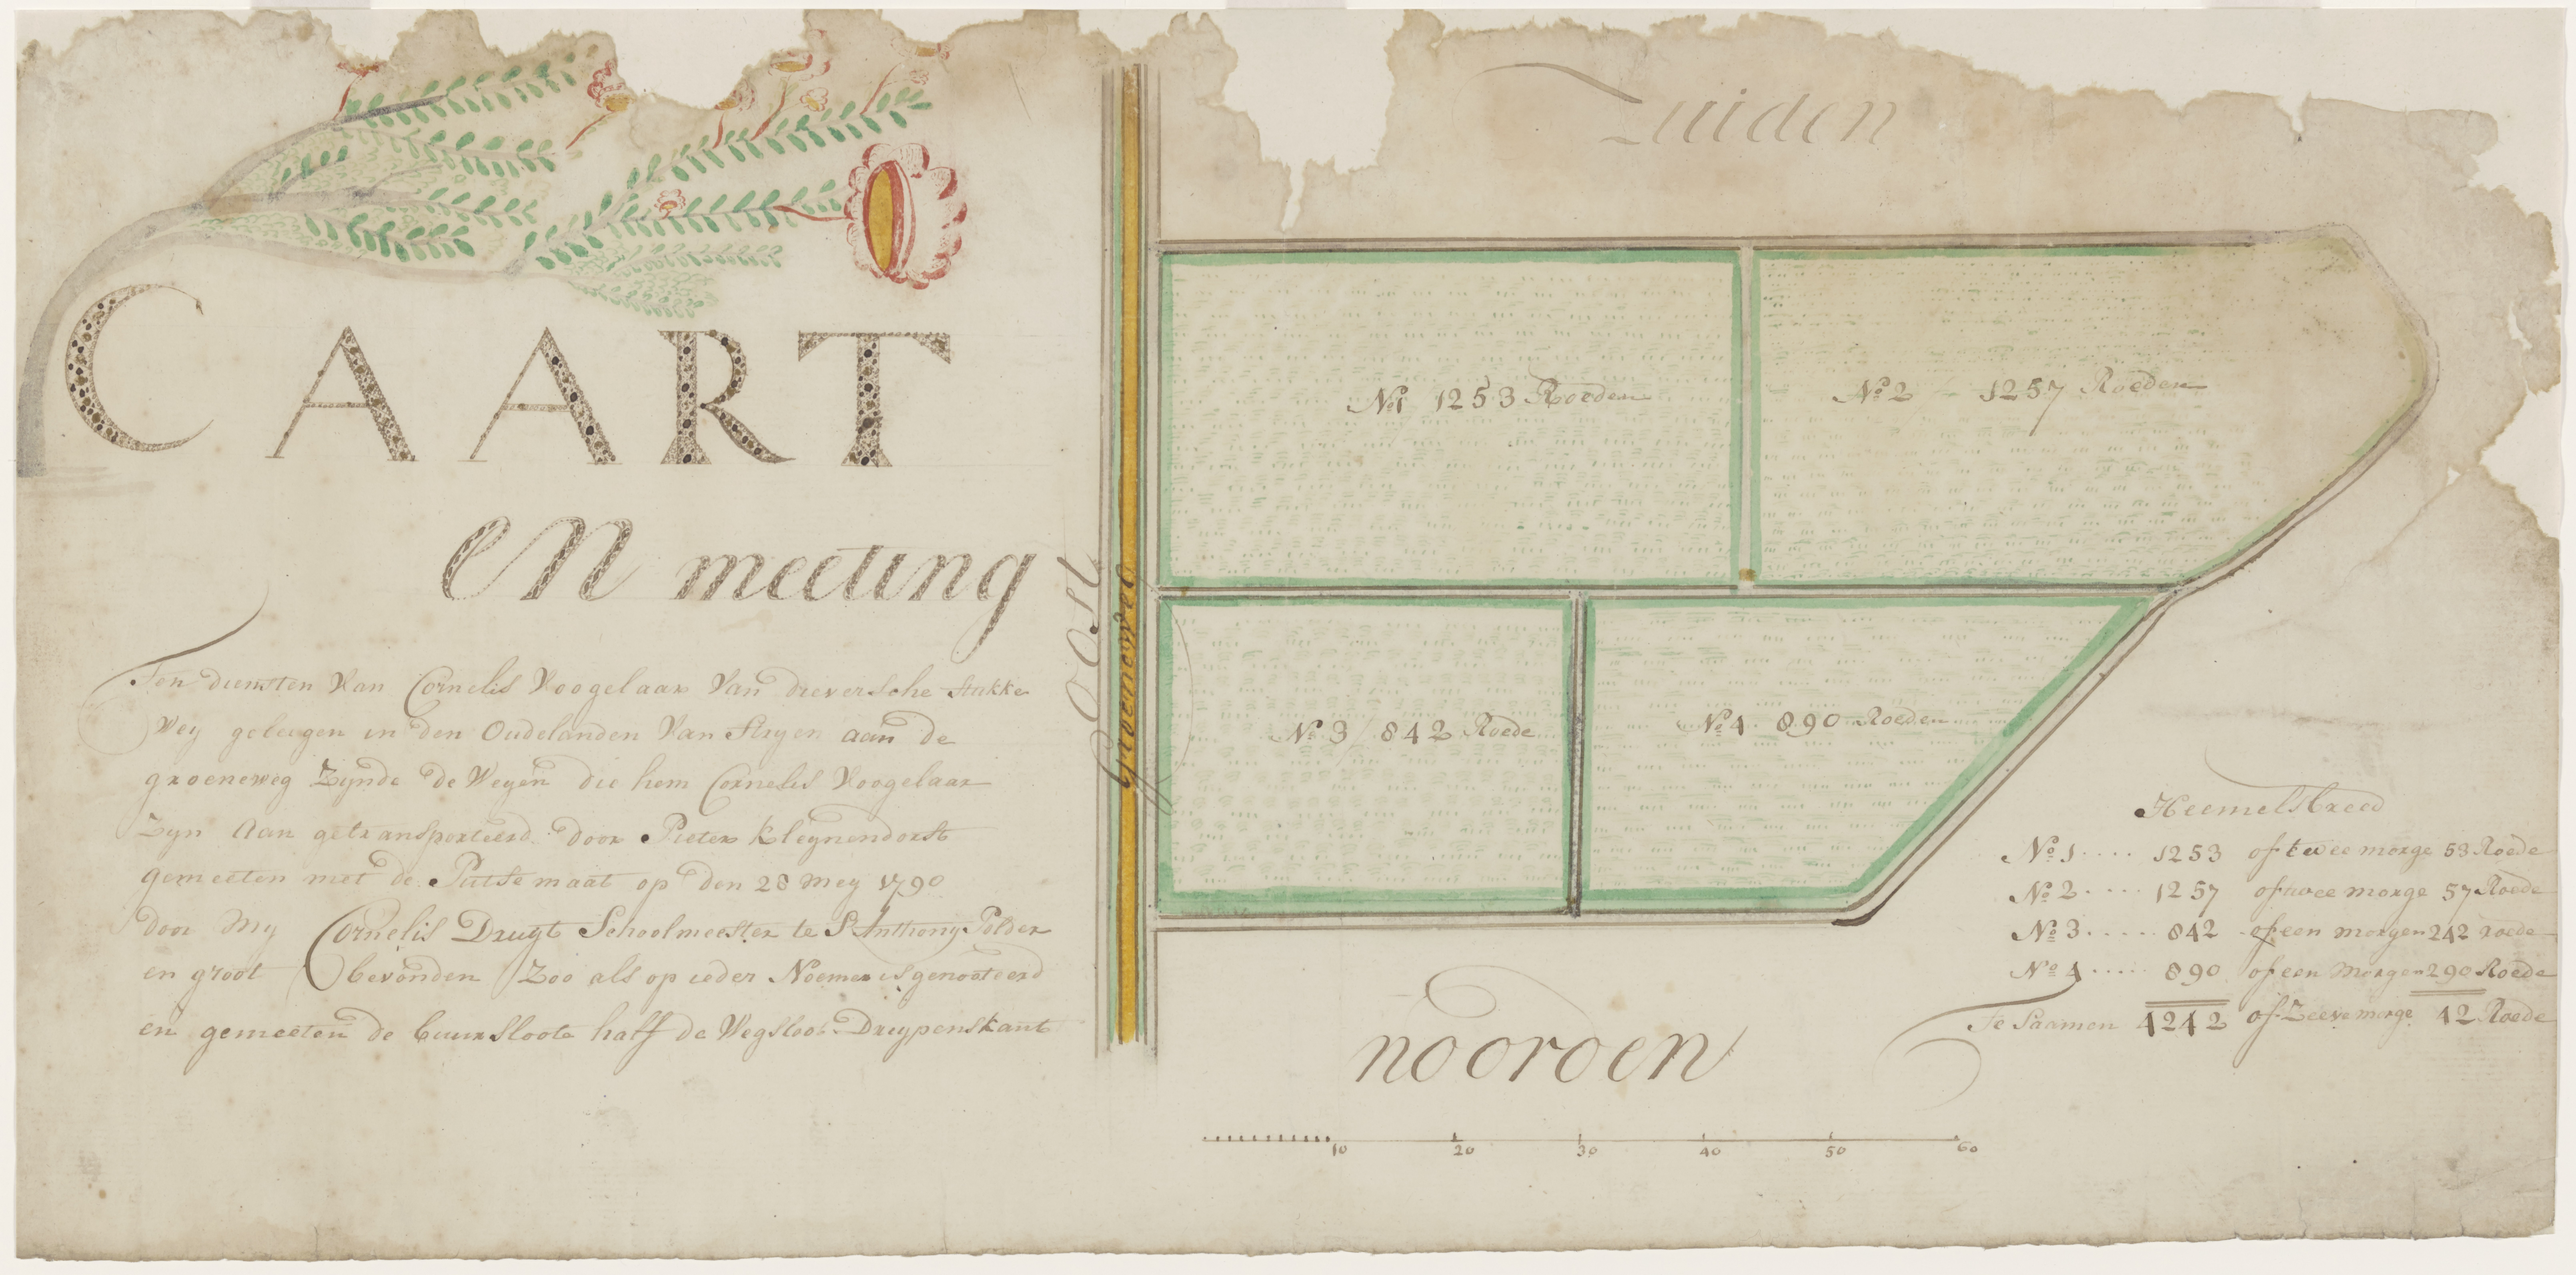 CAART
en meeting
Ten diensten Van Cornelis Voogelaar Van dieversche stukke
Wey geleegen in den Oudelanden Van Stryen aan de
groeneweg Zynde de Weyen die hem Cornelis Voogelaar
Zyn Aan getransporteerd door Pieter Kleynendorst
gemeeten met de Putse maat op den 28 mey 1790
door My Cornelis Druyt Schoolmeester te St Anthony Polder
en groot bevonden Zoo als op ieder Noemer is genooteerd
en gemeeten de buursloote half de Wegsloot Druypenskant
Oost
Groeneweg
Zuiden
No 1 1253 Roeden
No 2 1257 Roeden
No 3 / 842 Roede
No 4 890 Roeden
Heemelsbreed
No 1 .... 1253 of twee morge 53 Roede
No 2 .... 1257 of twee morge 57 Roede
No 3 ..... 842 of een morgen 242 roede
No 4 ..... 890 of een Morgen 290 Roede
Te Saamen 4242 of Zeeve morge 42 Roede
nooroen
10 20 30 40 50 60